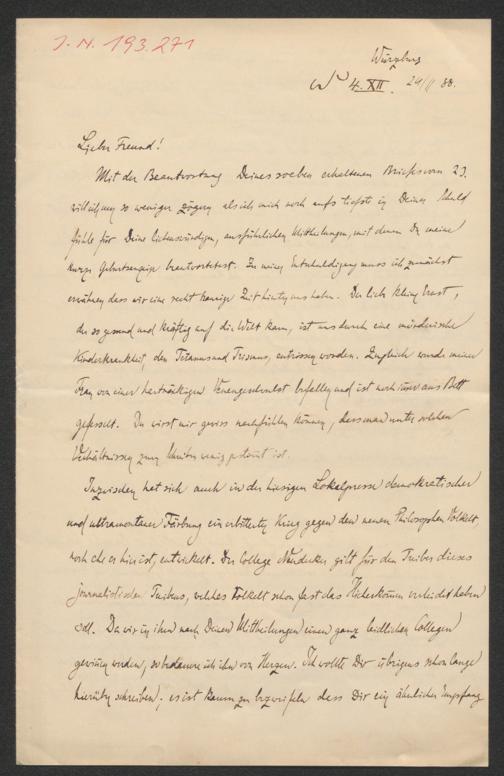 J.N. 193.271
Würzburg
4. XII. 24/11 88.
Lieber Freund!
Mit der Beantwortung Deines soeben erhaltenen Briefs vom 23.
will ich um so weniger zögern als ich mich noch aufs tiefste in Deiner Schuld
fühle für Deine liebenswürdigen, ausführlichen Mittheilungen, mit denen Du meine
kurze Geburtsanzeige beantwortetest. Zu meiner Entschuldigung muss ich zunächst
erwähnen dass wir eine recht traurige Zeit hinter uns haben. Der liebe kleine Ernst,
der so gesund und kräftig auf die Welt kam, ist uns durch eine mörderische
Kinderkrankheit, den Tetanus und Trismus, entrissen worden. Zugleich wurde meine
Frau von einer hartnäckigen Venengeschwulst befallen und ist noch immer ans Bett
gefesselt. Du wirst mir gewiss nachfühlen können, dass man unter solchen
Verhältnissen zum Schreiben wenig gestimmt ist.
Inzwischen hat sich auch in der hiesigen Lokalpresse demokratischer
und ultramontaner Färbung ein erbitterter Krieg gegen den neuen Philosophen Volkelt,
noch ehe er hier ist, entwickelt. Der College Neudecker gilt für den Treiber dieses
journalistischen Treibens, welches Volkelt schon fast das Hieherkommen verleidet haben
soll. Da wir in ihm nach Deinen Mittheilungen einen ganz leidlichen Collegen
gewinnen werden, so bedaure ich ihn von Herzen. Ich wollte Dir übrigens schon lange
hierüber schreiben; es ist kaum zu bezweifeln, dass Dir ein ähnlicher Empfang